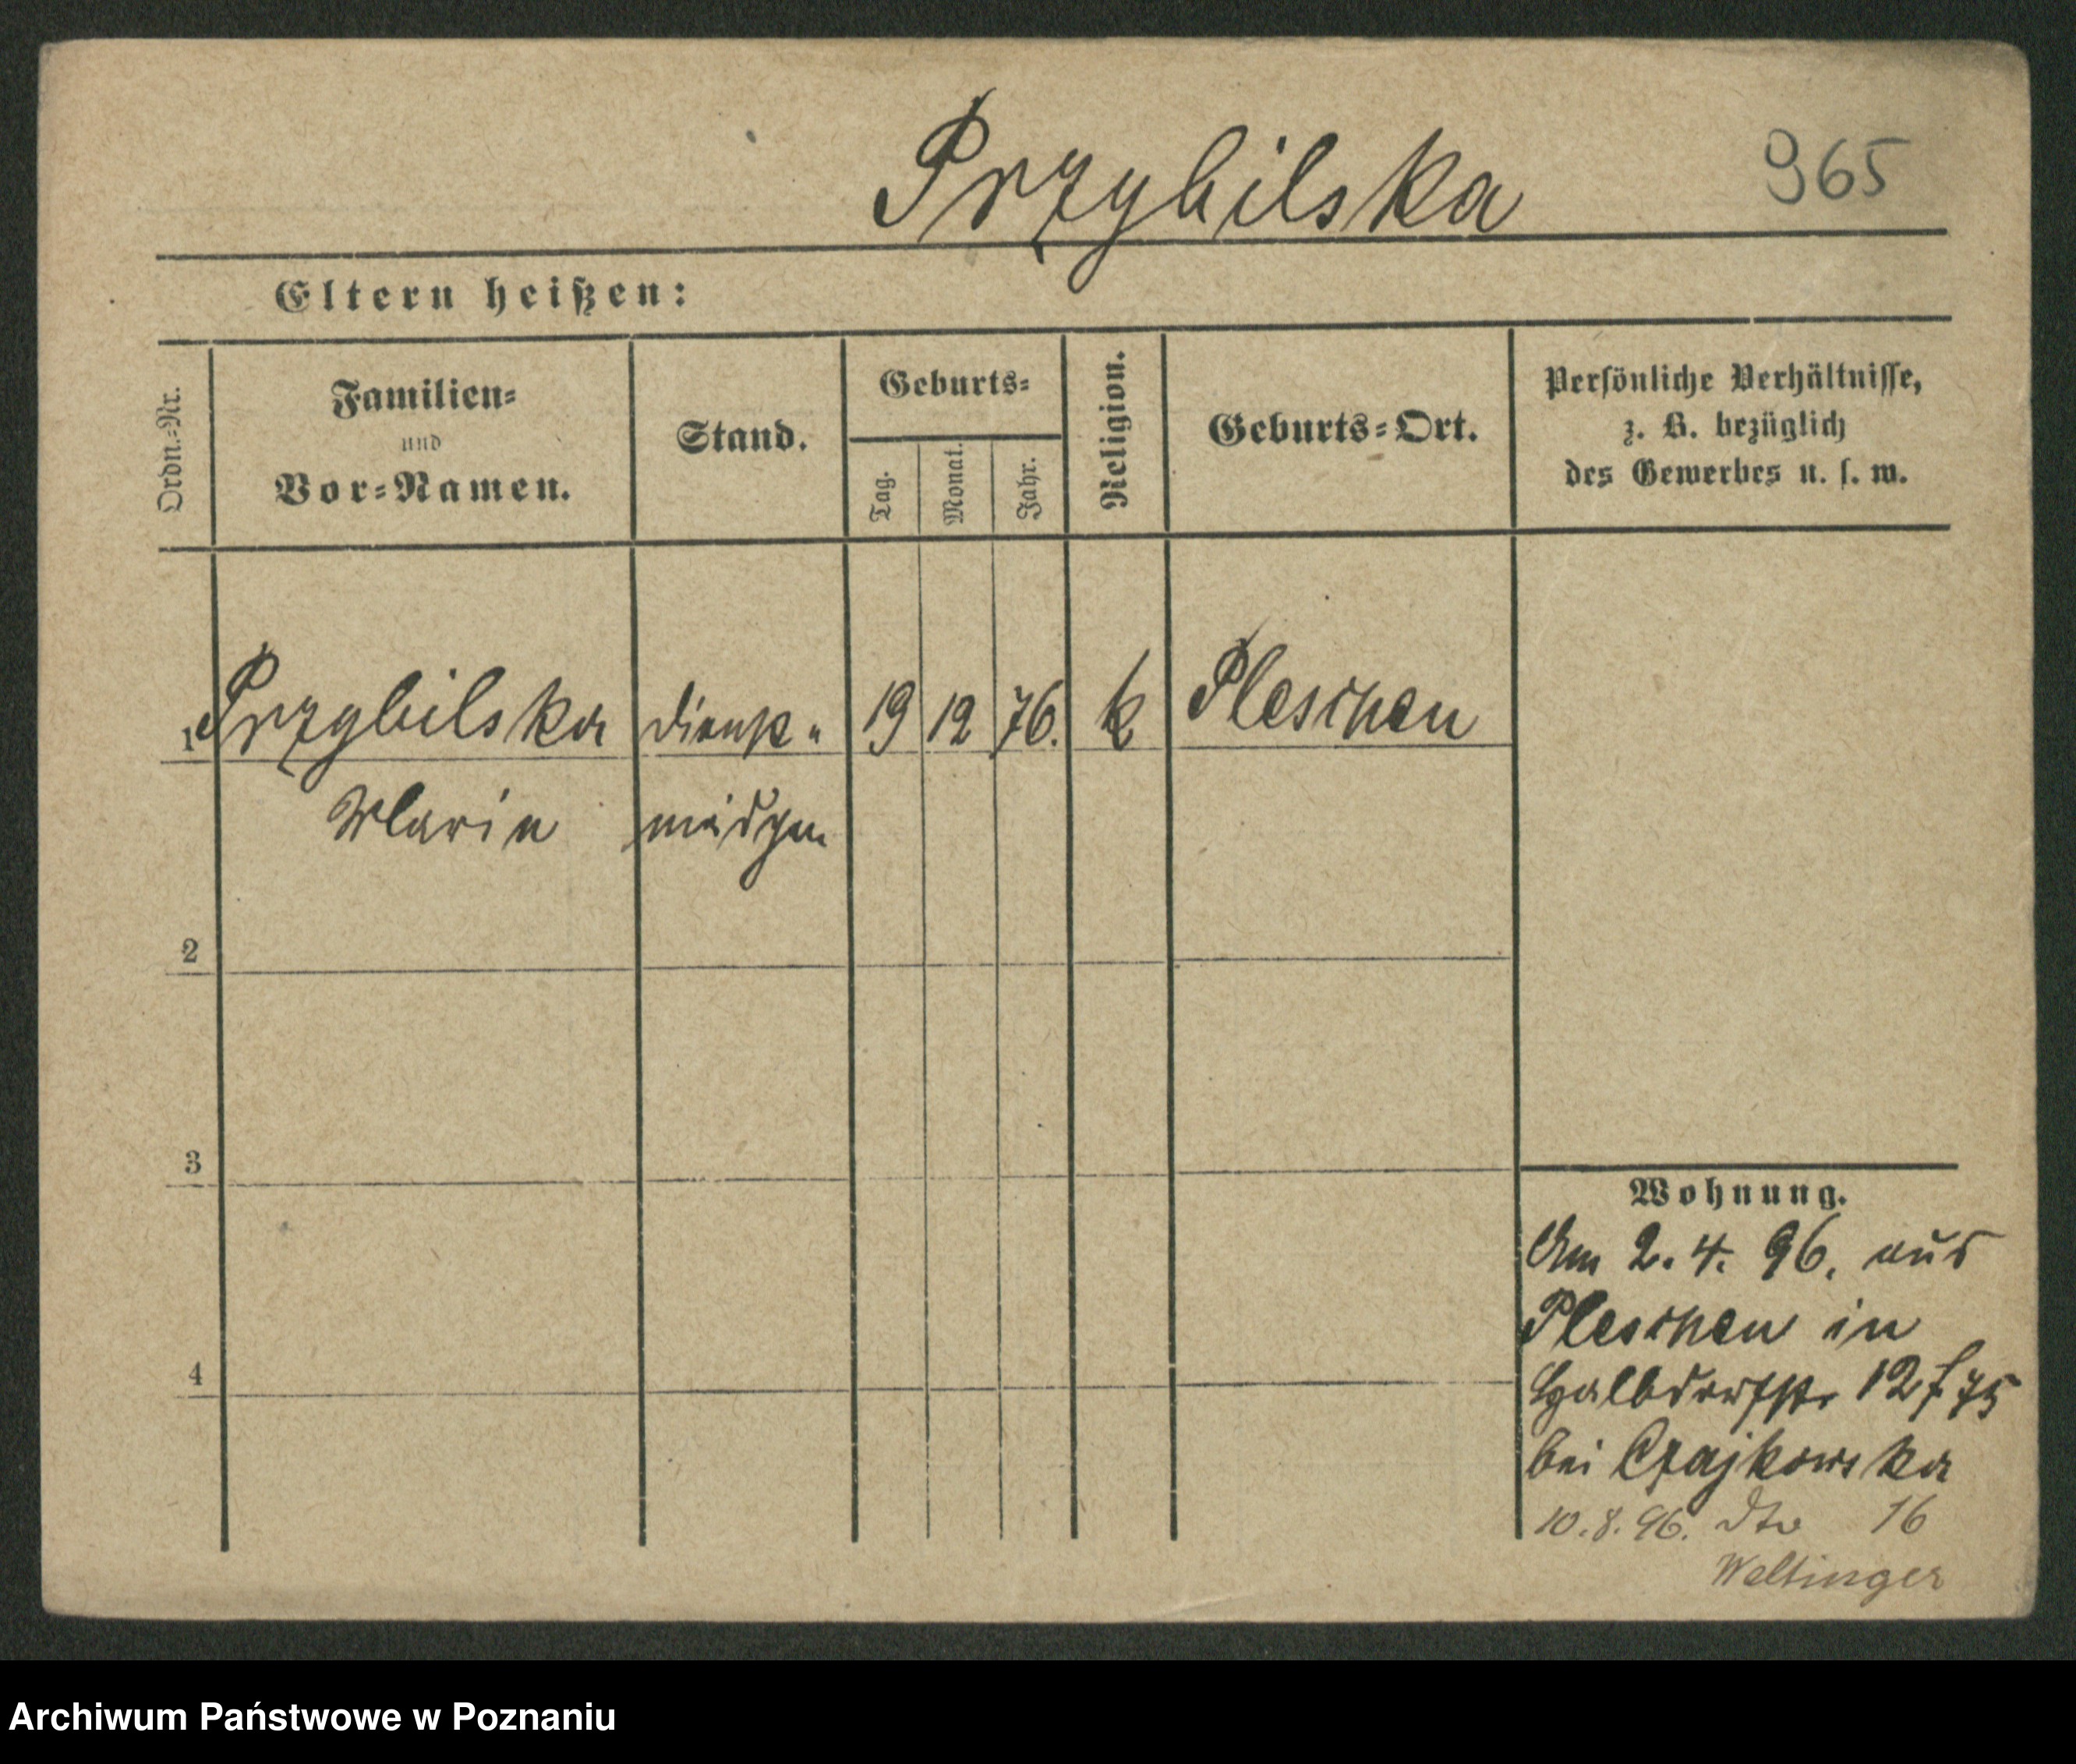 Przybilska 965
Eltern heißen:
Ordn.-Nr.
Familien-
und
Vor-Namen.
Stand.
Geburts-
Tag.
Monat.
Jahr.
Religion.
Geburts-Ort.
Persönliche Verhältnisse,
z. B. bezüglich
des Gewerbes u. s. w.
1 Przybilska Dienst- 19 12 76. k Pleschen
Marie mädgen
2
3
4
Wohnung.
Am 2. 4. 96. aus
Pleschen in
Halbdorfstr 12
bei Czajkowska
10. 8. 96. dto 16
Weltinger
Archiwum Państwowe w Poznaniu